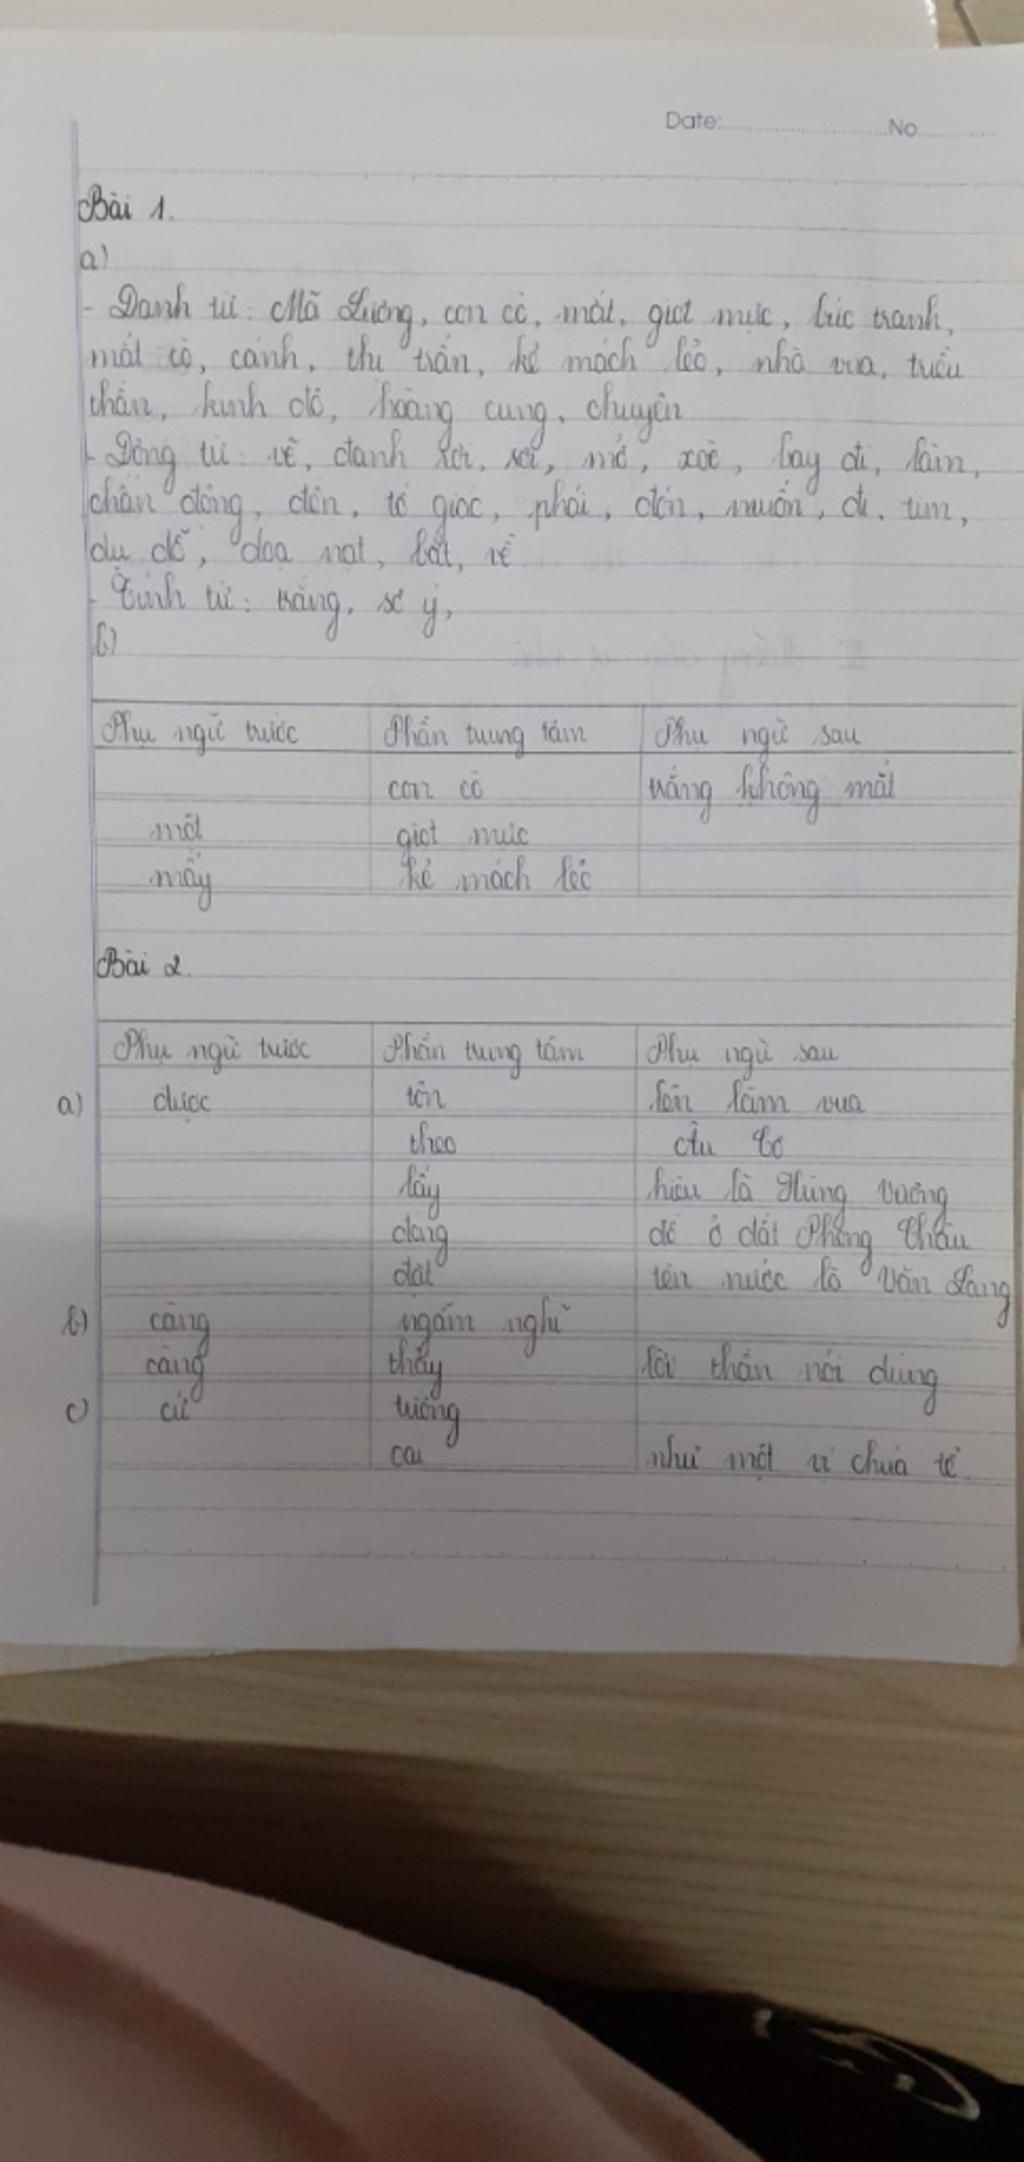 Date:..............No..........
Bài 1.
a)
- Danh từ: Mã Lương, con cò, mắt, giọt mực, bức tranh,
mắt cò, cánh, thị trấn, kẻ mách lẻo, nhà vua, triều
thần, kinh đô, hoàng cung, chuyện
- Động từ: vẽ, đánh rơi, rơi, mở, xoè, bay đi, làm,
chấn động, đến, tố giác, phái, đón, muốn, đi, tìm,
dụ dỗ, doạ nạt, bắt, vẽ
- Tính từ: trắng, sơ ý,
b)
Phụ ngữ trước Phần trung tâm Phụ ngữ sau
con cò trắng không mắt
một giọt mực
mấy kẻ mách lẻo
Bài 2.
Phụ ngữ trước Phần trung tâm Phụ ngữ sau
a) được tôn lên làm vua
theo
lấy hiệu là Hùng Vương
đóng đô ở đất Phong Châu
đặt tên nước là Văn Lang
b) càng ngẫm nghĩ
càng thấy lời thần nói đúng
c) cứ tưởng
oai như một vị chúa tể.